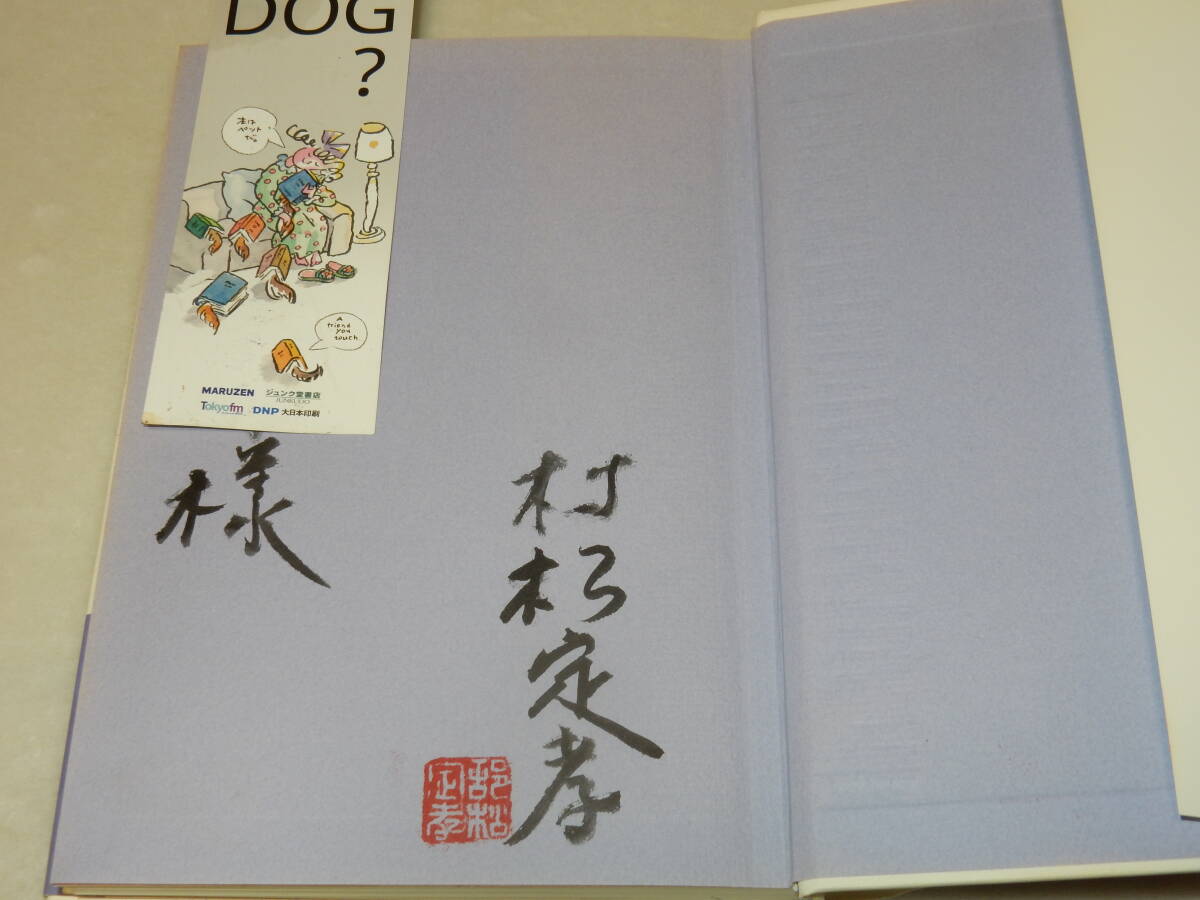 DOG
?
本は
ペット
だョ
A
friend
you
touch
MARUZEN ジュンク堂書店
JUNKUDO
Tokyofm DNP 大日本印刷
村松定孝
様
邨松
定孝